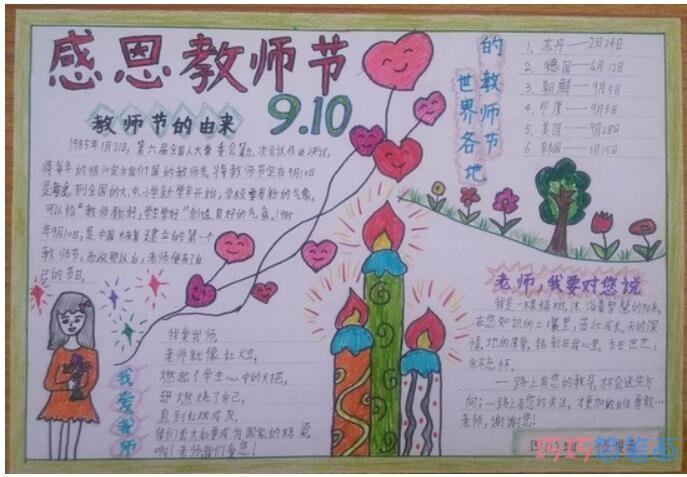 感恩教师节
9.10
教师节的由来
1985年1月21日，第六届全国人大常委会第九次会议作出决议，
将每年的9月10定为我们国的教师节，将教师节定在9月10日
是考虑到全国的大、中、小学新学年开始，学校要有新的气象，
可以给“教师教好，学生学好”创造良好的气氛。1985
年9月10日，是中国恢复建立的第一个
教师节，而从那以后，老师便有了自
己的节日。
世界各地
的教师节
1、苏丹——2月24日
2、德国——6月12日
3、朝鲜——9月5日
4、印度——9月5日
5、美国——9月28日
6、韩国——5月15日
我爱我师
我爱我师
老师就像红烛，
燃起了学生心中的火把，
却燃烧了自己，
直到红烛成灰，
我们长大后要成为国家的栋梁，
啊！老师我们爱您！
老师，我要对您说
我是一棵绿树，沐浴着智慧的阳光，
在您知识的土壤里，茁壮成长，天的深
情，地的厚爱，铭刻在我心里，生生世世，
永不忘怀。
——一路上有您的教导，才不会迷失方
向；一路上有您的关注，才更加的自信勇敢…
老师，谢谢您！
巧巧简笔画